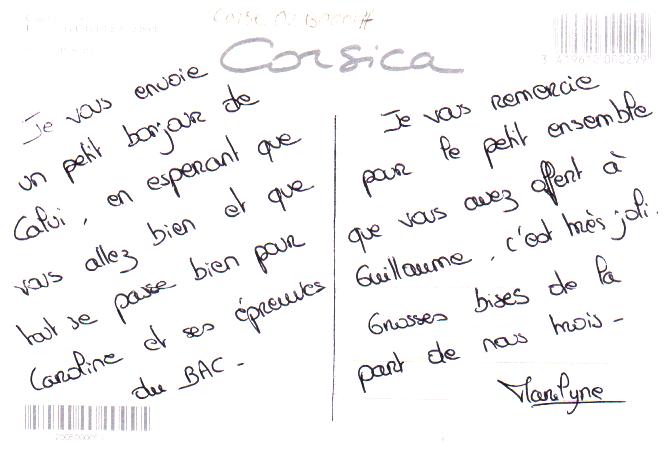 Corsica
3 419612 000299
Je vous envoie
un petit bonjour de
Calvi, en esperant que
vous allez bien et que
tout se passe bien pour
Caroline et ses épreuves
du BAC -
Je vous remercie
pour le petit ensemble
que vous avez offert à
Guillaume, c'est très joli.
Grosses bises de la
part de nous trois -
Marlyne